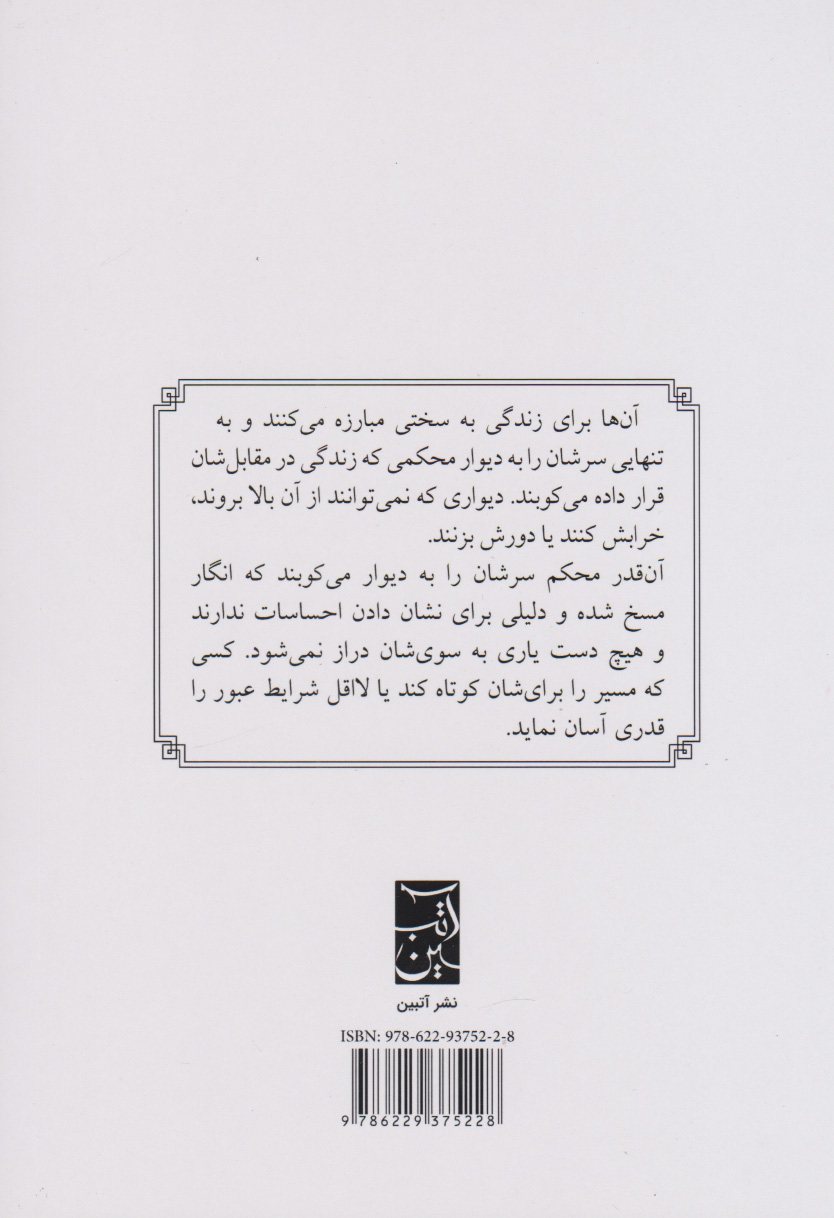 آن‌ها برای زندگی به سختی مبارزه می‌کنند و به
تنهایی سرشان را به دیوار محکمی که زندگی در مقابل‌شان
قرار داده می‌کوبند. دیواری که نمی‌توانند از آن بالا بروند،
خرابش کنند یا دورش بزنند.
آن‌قدر محکم سرشان را به دیوار می‌کوبند که انگار
مسخ شده و دلیلی برای نشان دادن احساسات ندارند
و هیچ دست یاری به سوی‌شان دراز نمی‌شود. کسی
که مسیر را برای‌شان کوتاه کند یا لااقل شرایط عبور را
قدری آسان نماید.
آتبین
نشر آتبین
ISBN: 978-622-93752-2-8
9 786229 375228